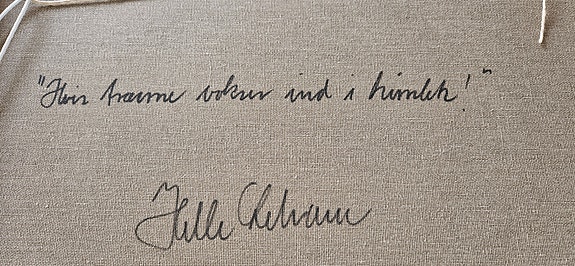 "Hvis træerne vokser ind i himlen!"
Helle